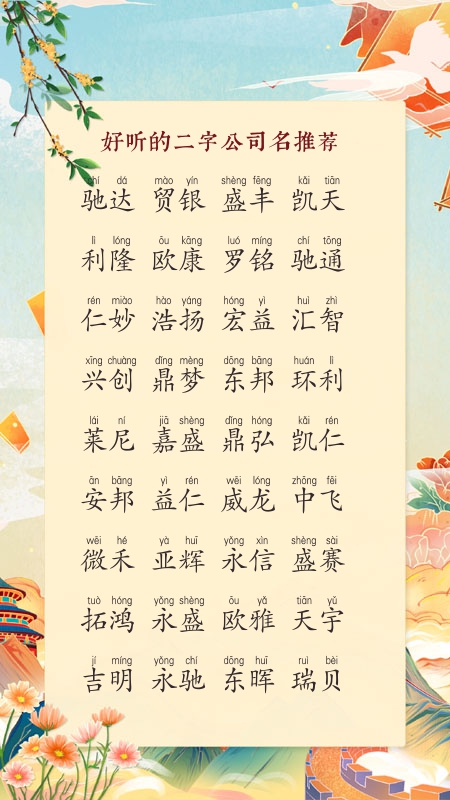 好听的二字公司名推荐
chí dá mào yín shèng fēng kǎi tiān
驰达 贸银 盛丰 凯天
lì lóng ōu kāng luó míng chí tōng
利隆 欧康 罗铭 驰通
rén miào hào yáng hóng yì huì zhì
仁妙 浩扬 宏益 汇智
xīng chuàng dǐng mèng dōng bāng huán lì
兴创 鼎梦 东邦 环利
lái ní jiā shèng dǐng hóng kǎi rén
莱尼 嘉盛 鼎弘 凯仁
ān bāng yì rén wēi lóng zhōng fēi
安邦 益仁 威龙 中飞
wēi hé yà huī yǒng xìn shèng sài
微禾 亚辉 永信 盛赛
tuò hóng yǒng shèng ōu yǎ tiān yǔ
拓鸿 永盛 欧雅 天宇
jí míng yǒng chí dōng huī ruì bèi
吉明 永驰 东晖 瑞贝